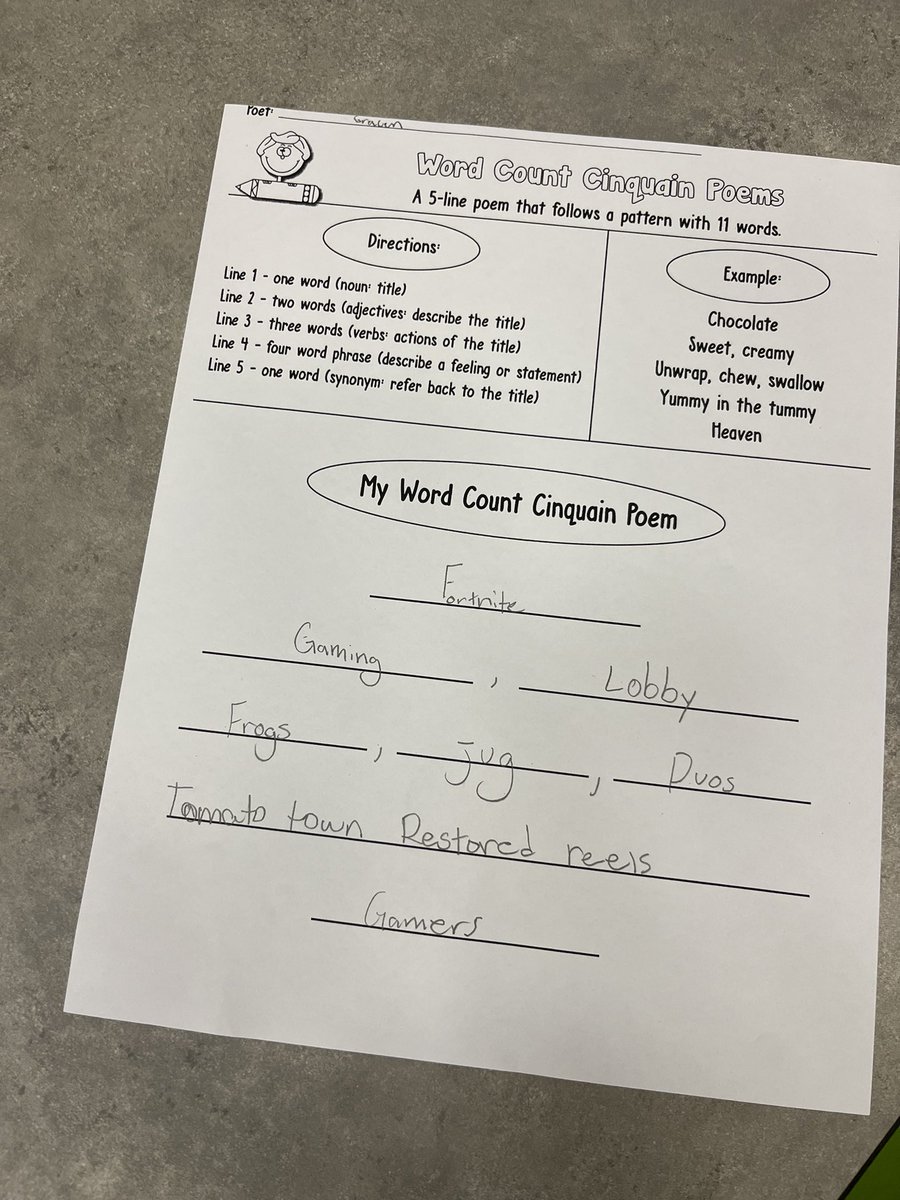 Poet:
Word Count Cinquain Poems
A 5-line poem that follows a pattern with 11 words.
Directions:
Line 1 - one word (noun: title)
Line 2 - two words (adjectives: describe the title)
Line 3 - three words (verbs: actions of the title)
Line 4 - four word phrase (describe a feeling or statement)
Line 5 - one word (synonym: refer back to the title)
Example:
Chocolate
Sweet, creamy
Unwrap, chew, swallow
Yummy in the tummy
Heaven
My Word Count Cinquain Poem
Fortnite
Gaming, Lobby
Frogs, jug, Duos
Tomato town Restored reels
Gamers